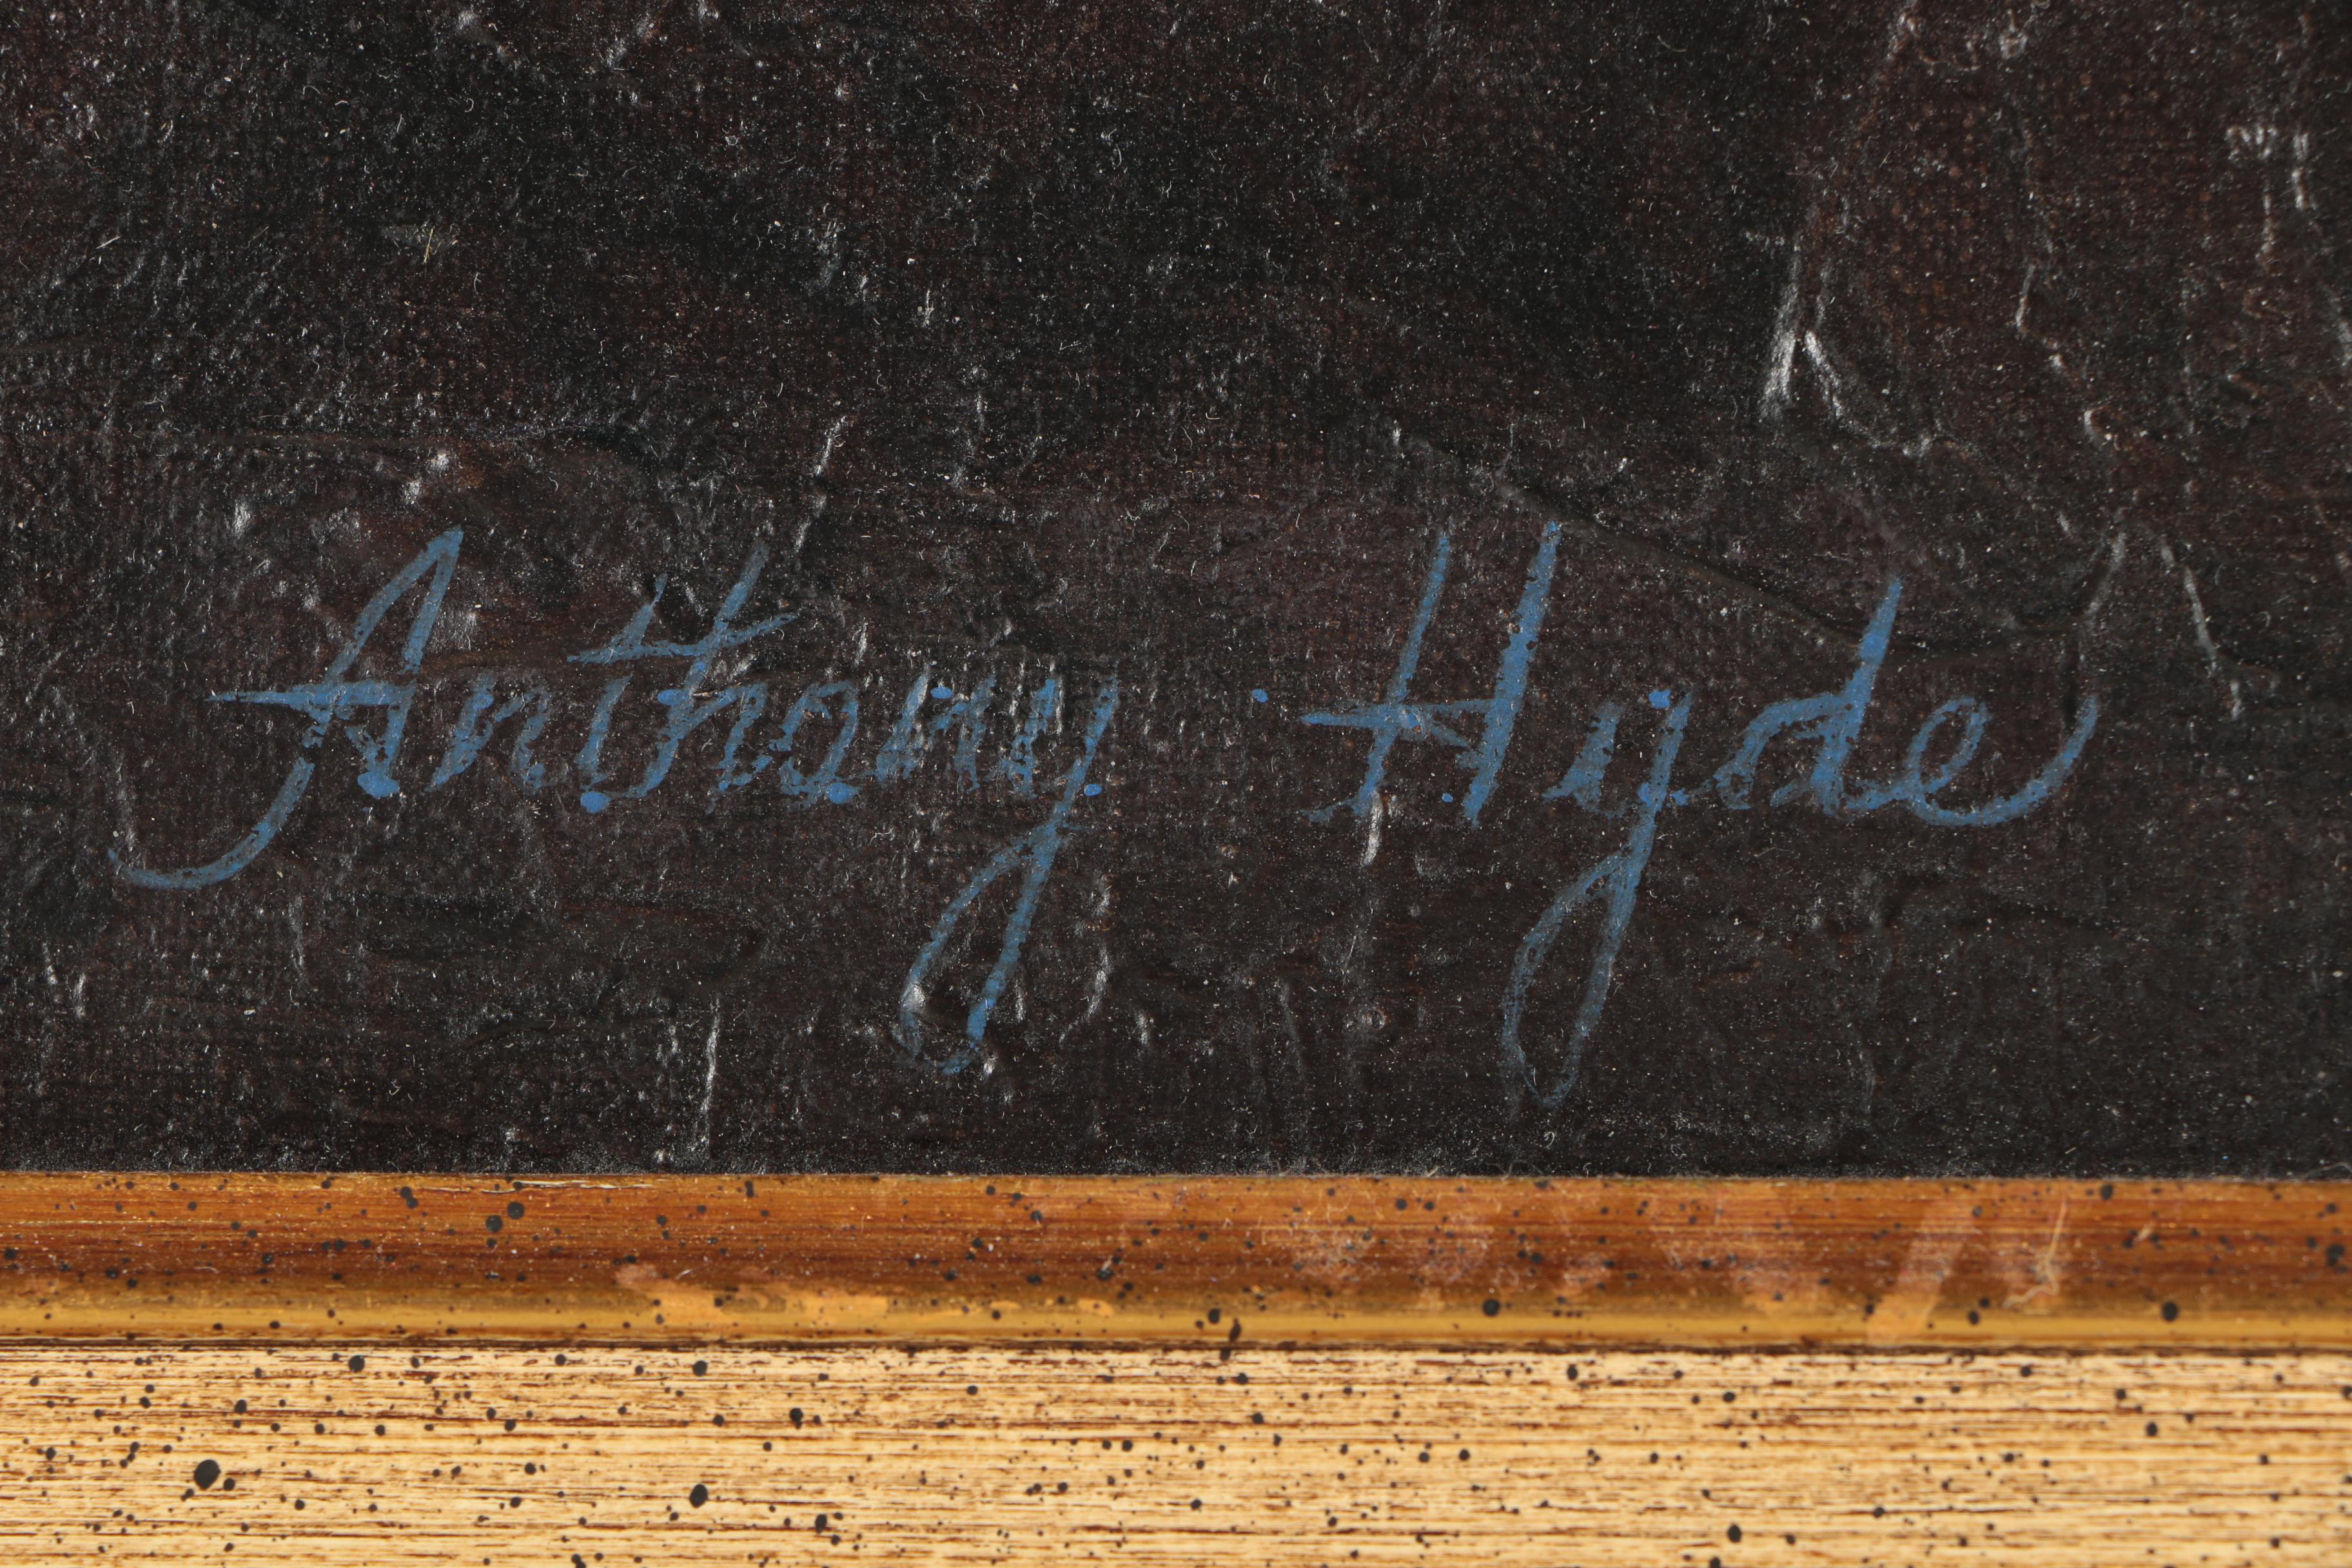 Anthony Hyde